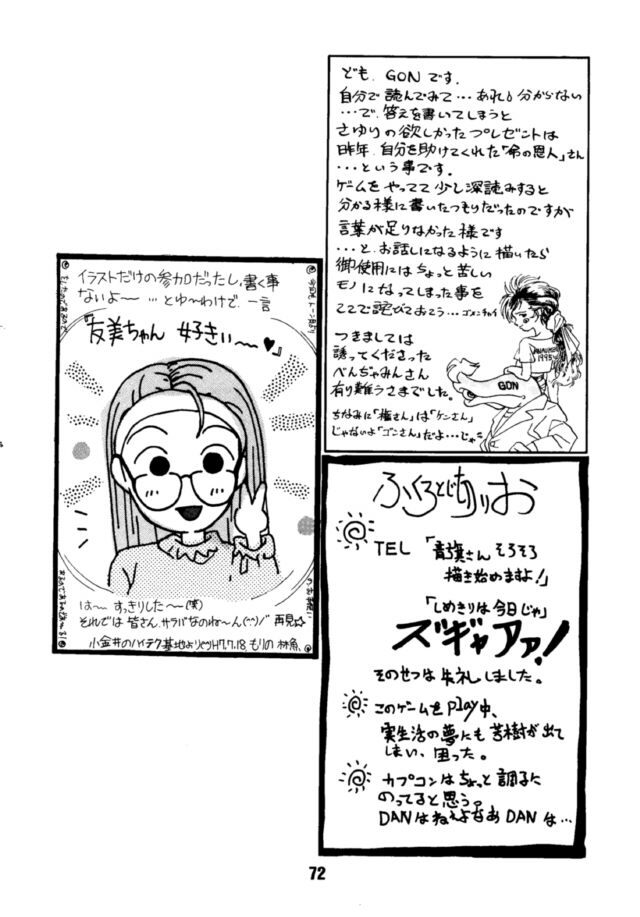 ども、GONです。
自分で読んでみて…あれ？分からない
…で、答えを書いてしまうと
さゆりの欲しかったプレゼントは
昨年、自分を助けてくれた「命の恩人」さん
…という事です。
ゲームをやってて少し深読みすると
分かる様に書いたつもりだったのですが
言葉が足りなかった様です
…と、お話しになるように描いたら
御使用にはちょっと苦しい
モノになってしまった事を
ここで詫びておこう…ゴメンチャイ
つきましては
誘ってくださった
べんぢゃみんさん
有り難うさまでした。
ちなみに「権さん」は「ケンさん」
じゃないよ「ゴンさん」だよ…じゃっ
1995
GON
イラストだけの参加だったし、書く事
ないよ〜 …とゆ〜わけで、一言
『友美ちゃん 好きぃ〜〜♥』
は〜〜 すっきりした〜(笑)
それでは皆さん、サラバなのね〜ん(^^)/~ 再見☆
小金井のハイテク基地より H7.7.18. もりの 林魚
ふくろとじきりお
TEL 「青旗さんそろそろ
描き始めますよ!」
「しめきりは今日じゃ」
ズギャアァ!
そのせつは失礼しました。
このゲームをplay中、
実生活の夢にも芳樹が出て
しまい、困った。
カプコンはちょっと調子に
のってると思う。
DANはねえよなあ DANは…
72